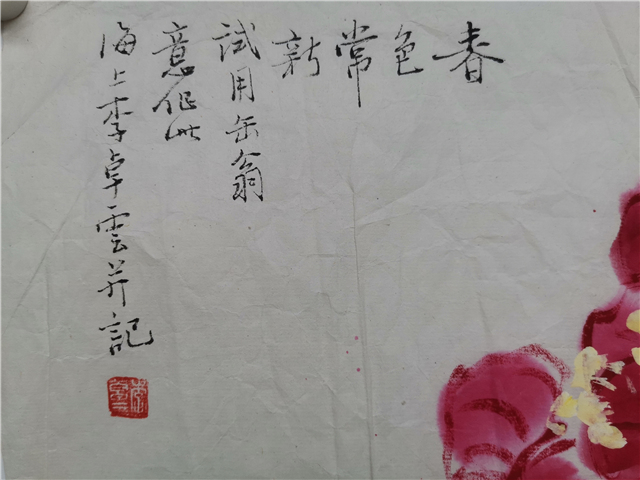 春
色
常
新
試用缶翁
意作此
海上李卓雲并記